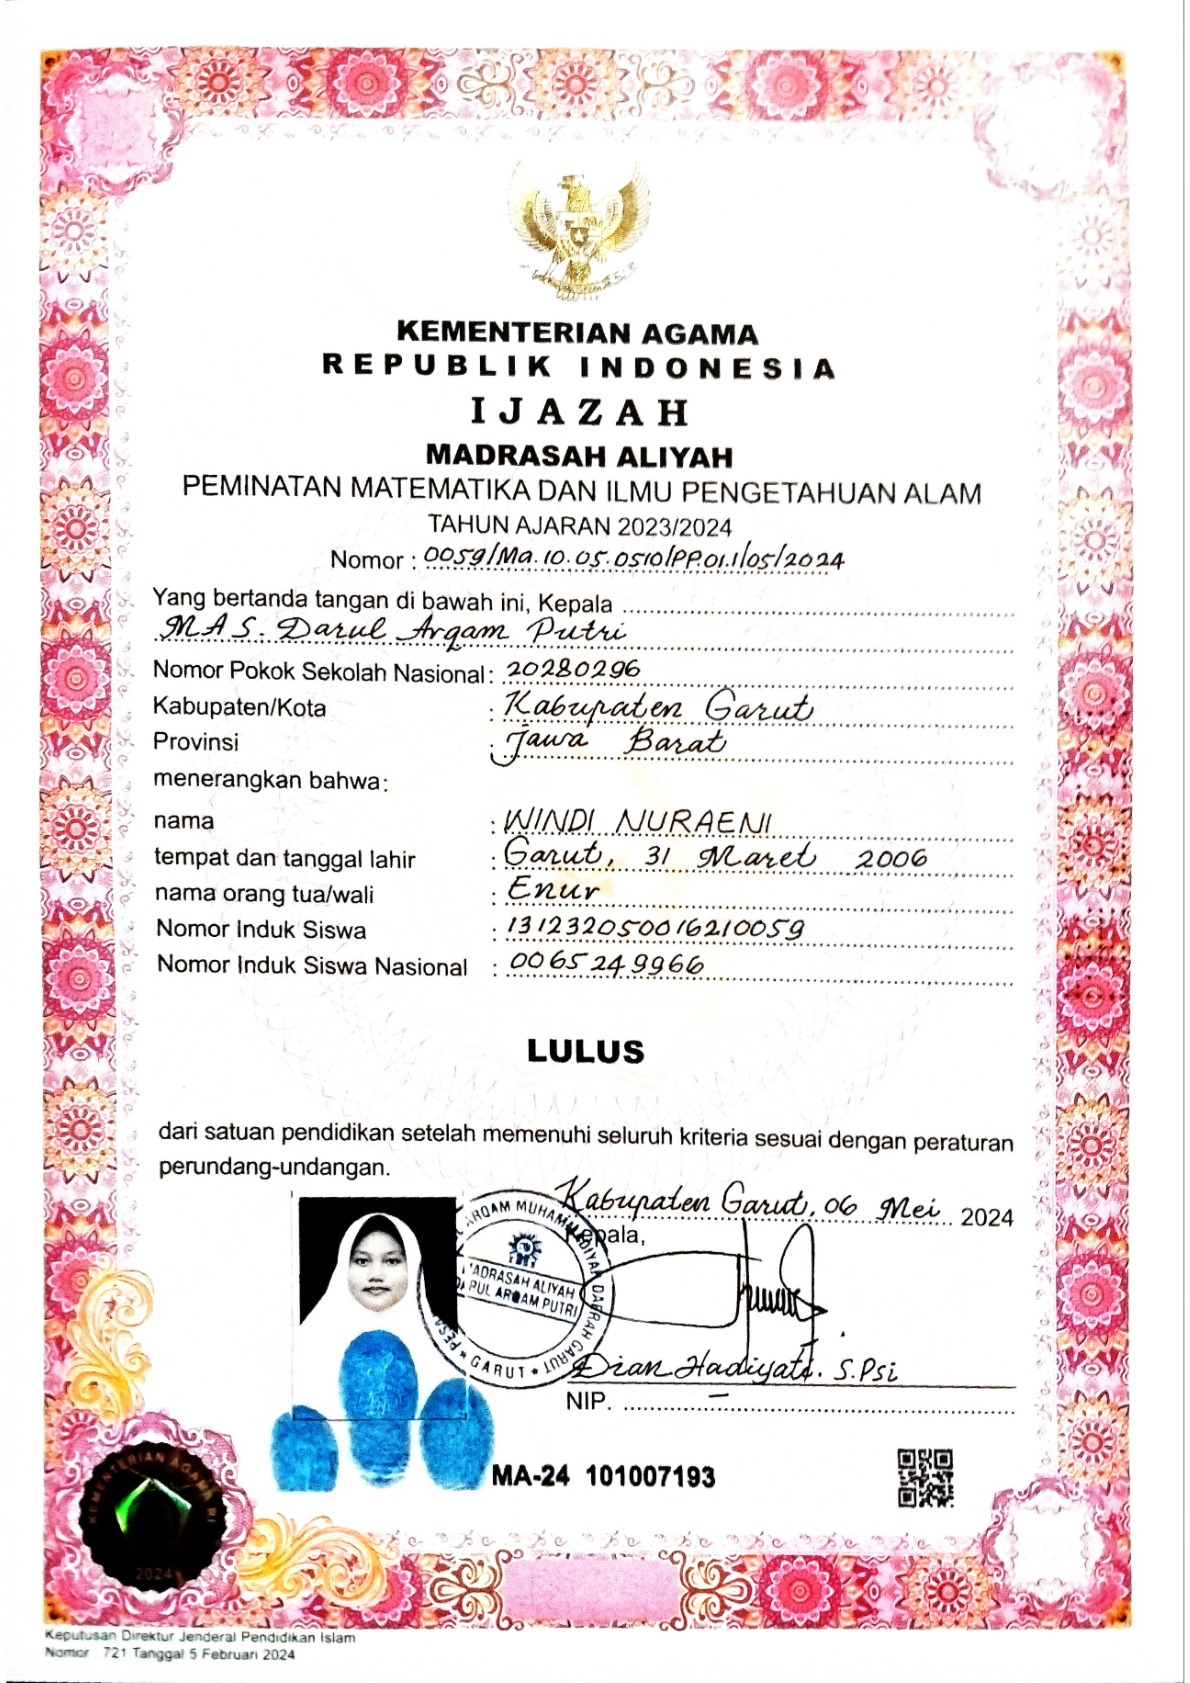 KEMENTERIAN AGAMA
REPUBLIK INDONESIA
IJAZAH
MADRASAH ALIYAH
PEMINATAN MATEMATIKA DAN ILMU PENGETAHUAN ALAM
TAHUN AJARAN 2023/2024
Nomor : 0059/Ma.10.05.0510/PP.01.1/05/2024
Yang bertanda tangan di bawah ini, Kepala
MAS. Darul Arqam Putri
Nomor Pokok Sekolah Nasional : 20280296
Kabupaten/Kota : Kabupaten Garut
Provinsi : Jawa Barat
menerangkan bahwa:
nama : WINDI NURAENI
tempat dan tanggal lahir : Garut, 31 Maret 2006
nama orang tua/wali : Enur
Nomor Induk Siswa : 131232050016210059
Nomor Induk Siswa Nasional : 0065249966
LULUS
dari satuan pendidikan setelah memenuhi seluruh kriteria sesuai dengan peraturan
perundang-undangan.
Kabupaten Garut, 06 Mei 2024
Kepala,
ARQAM MUHAMMADIYAH DAERAH GARUT
MADRASAH ALIYAH
DARUL ARQAM PUTRI
GARUT
Dian Hadiyati. S.Psi
NIP. –
MA-24 101007193
KEMENTERIAN AGAMA RI
2024
Keputusan Direktur Jenderal Pendidikan Islam
Nomor : 721 Tanggal 5 Februari 2024